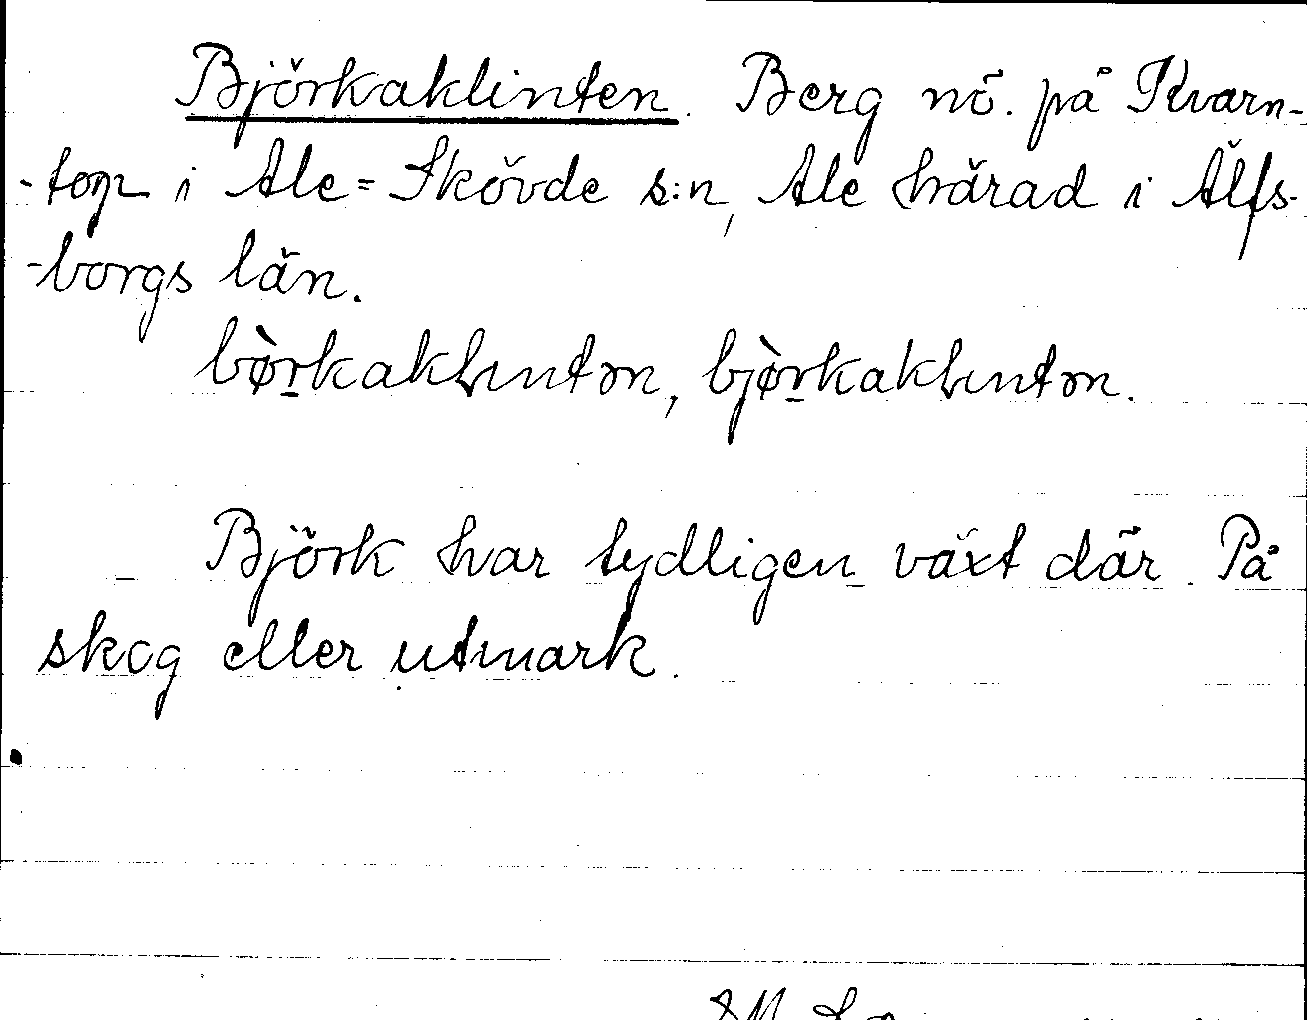 Björkaklinten. Berg nö. på Kvarn-
-torp i Ale-Skövde s:n, Ale härad i Älfs-
-borgs län.
bø̀rkaklıntən, bjø̀rkaklıntən.
Björk har tydligen växt där. På
skog eller utmark.